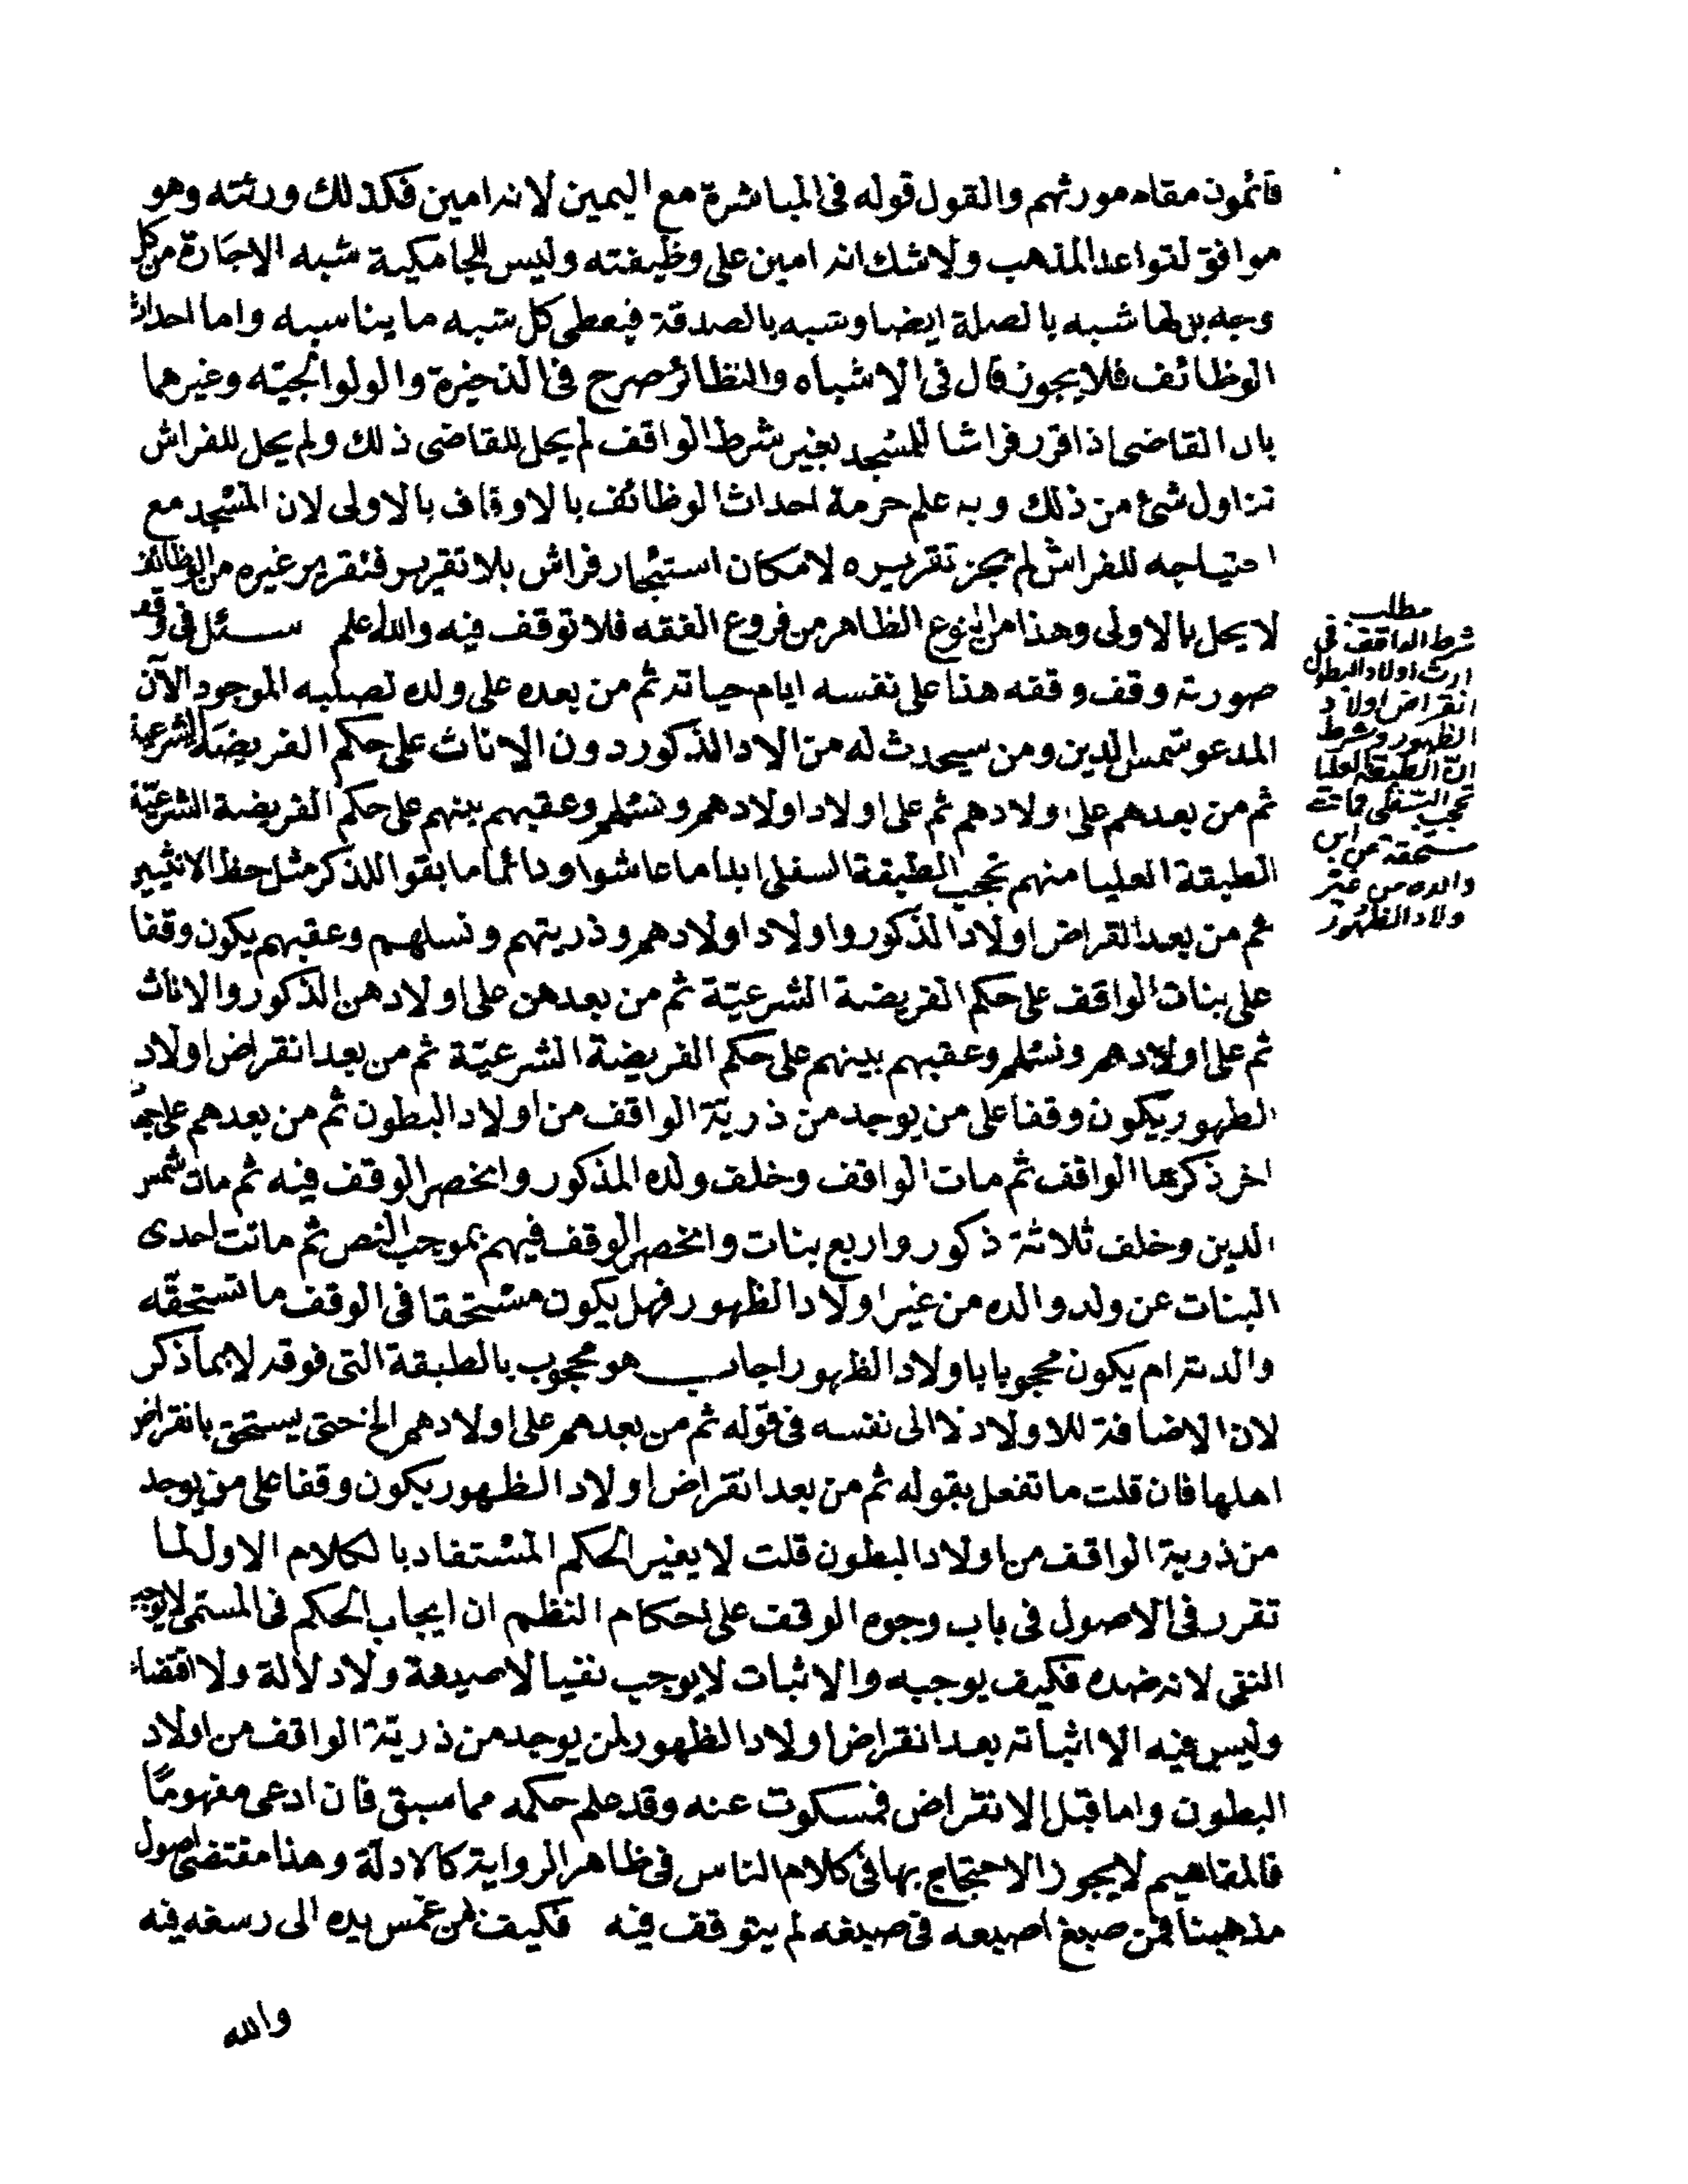 قائمون مقام مورثهم والقول قوله فى المباشرة مع اليمين لانه امين فكذلك ورثته وهو
موافق لقواعد المذهب ولا شك انه امين على وظيفته وليس للجامكية شبه الاجارة من كل
وجه بل لها شبه بالصلة ايضا وشبه بالصدقة فيعطى كل شبه ما يناسبه واما احداث
الوظائف فلا يجوز قال فى الاشباه والنظائر صرح فى الذخيرة والولوالجيّه وغيرهما
بان القاضى اذا قرر فراشا للمسجد بغير شرط الواقف لم يحل للقاضى ذلك ولم يحل للفراش
تناول شئ من ذلك وبه علم حرمة احداث الوظائف بالاوقاف بالاولى لان المسجد مع
احتياجه للفراش لم يجز تقريره لامكان استيجار فراش بلا تقرير فتقرير غيره من الوظائف
لا يحل بالاولى وهذا من النوع الظاهر من فروع الفقه فلا توقف فيه والله اعلم سئل فى وقف
صورته وقف وقفه هذا على نفسه ايام حياته ثم من بعده على ولده لصلبه الموجود الآن
المدعو شمس الدين ومن سيحدث له من الاد الذكور دون الاناث على حكم الفريضة الشرعية
ثم من بعدهم على اولادهم ثم على اولاد اولادهم ونسلهم وعقبهم بينهم على حكم الفريضة الشرعيّة
الطبقة العليا منهم تحجب الطبقة السفلى ابدا ما عاشوا ودائما ما بقوا للذكر مثل حظ الانثيين
ثم من بعد انقراض اولاد الذكور واولاد اولادهم وذريتهم ونسلهم وعقبهم يكون وقفا
على بنات الواقف على حكم الفريضة الشرعيّة ثم من بعدهن على اولادهن الذكور والاناث
ثم على اولادهم ونسلهم وعقبهم بينهم على حكم الفريضة الشرعيّة ثم من بعد انقراض اولاد
الظهور يكون وقفا على من يوجد من ذريّة الواقف من اولاد البطون ثم من بعدهم على جهة
اخر ذكرها الواقف ثم مات الواقف وخلف ولده المذكور وانحصر الوقف فيه ثم مات شمس
الدين وخلف ثلاثة ذكور واربع بنات وانحصر الوقف فيهم بموجب النص ثم ماتت احدى
البنات عن ولد والده من غير اولاد الظهور فهل يكون مستحقا فى الوقف ما تستحقّه
والدته ام يكون محجوبا باولاد الظهور اجاب هو محجوب بالطبقة التى فوقه لا بما ذكر
لان الاضافة للاولاد لا الى نفسه فى قوله ثم من بعدهم على اولادهم الخ حتى يستحق بانقراض
اهلها فان قلت ما تفعل بقوله ثم من بعد انقراض اولاد الظهور يكون وقفا على من يوجد
من ذرية الواقف من اولاد البطون قلت لا يغير الحكم المستفاد بالكلام الاول لما
تقرر فى الاصول فى باب وجوه الوقف على احكام النظم ان ايجاب الحكم فى المسمى لا يوجب
النفى لانه ضده فكيف يوجبه والاثبات لا يوجب نفيا لا صيغة ولا دلالة ولا اقتضاء
وليس فيه الا اثباته بعد انقراض اولاد الظهور لمن يوجد من ذريّة الواقف من اولاد
البطون واما قبل الانقراض فمسكوت عنه وقد علم حكمه مما سبق فان ادعى مفهومًا
فالمفاهيم لا يجوز الاحتجاج بها فى كلام الناس فى ظاهر الرواية كالادلّة وهذا مقتضى اصول
مذهبنا فمن صبغ اصبعه فى صبغه لم يتوقف فيه فكيف لمن غمس يده الى رسغه فيه
والله
مطلب
شرط الواقف فى
ارث اولاد البطون
انقراض اولاد
الظهور وشرط
انّ الطبقة العليا
تحجب السّفلى فماتت
مستحقة عن ابن
والده من غير
ولاد الظهور